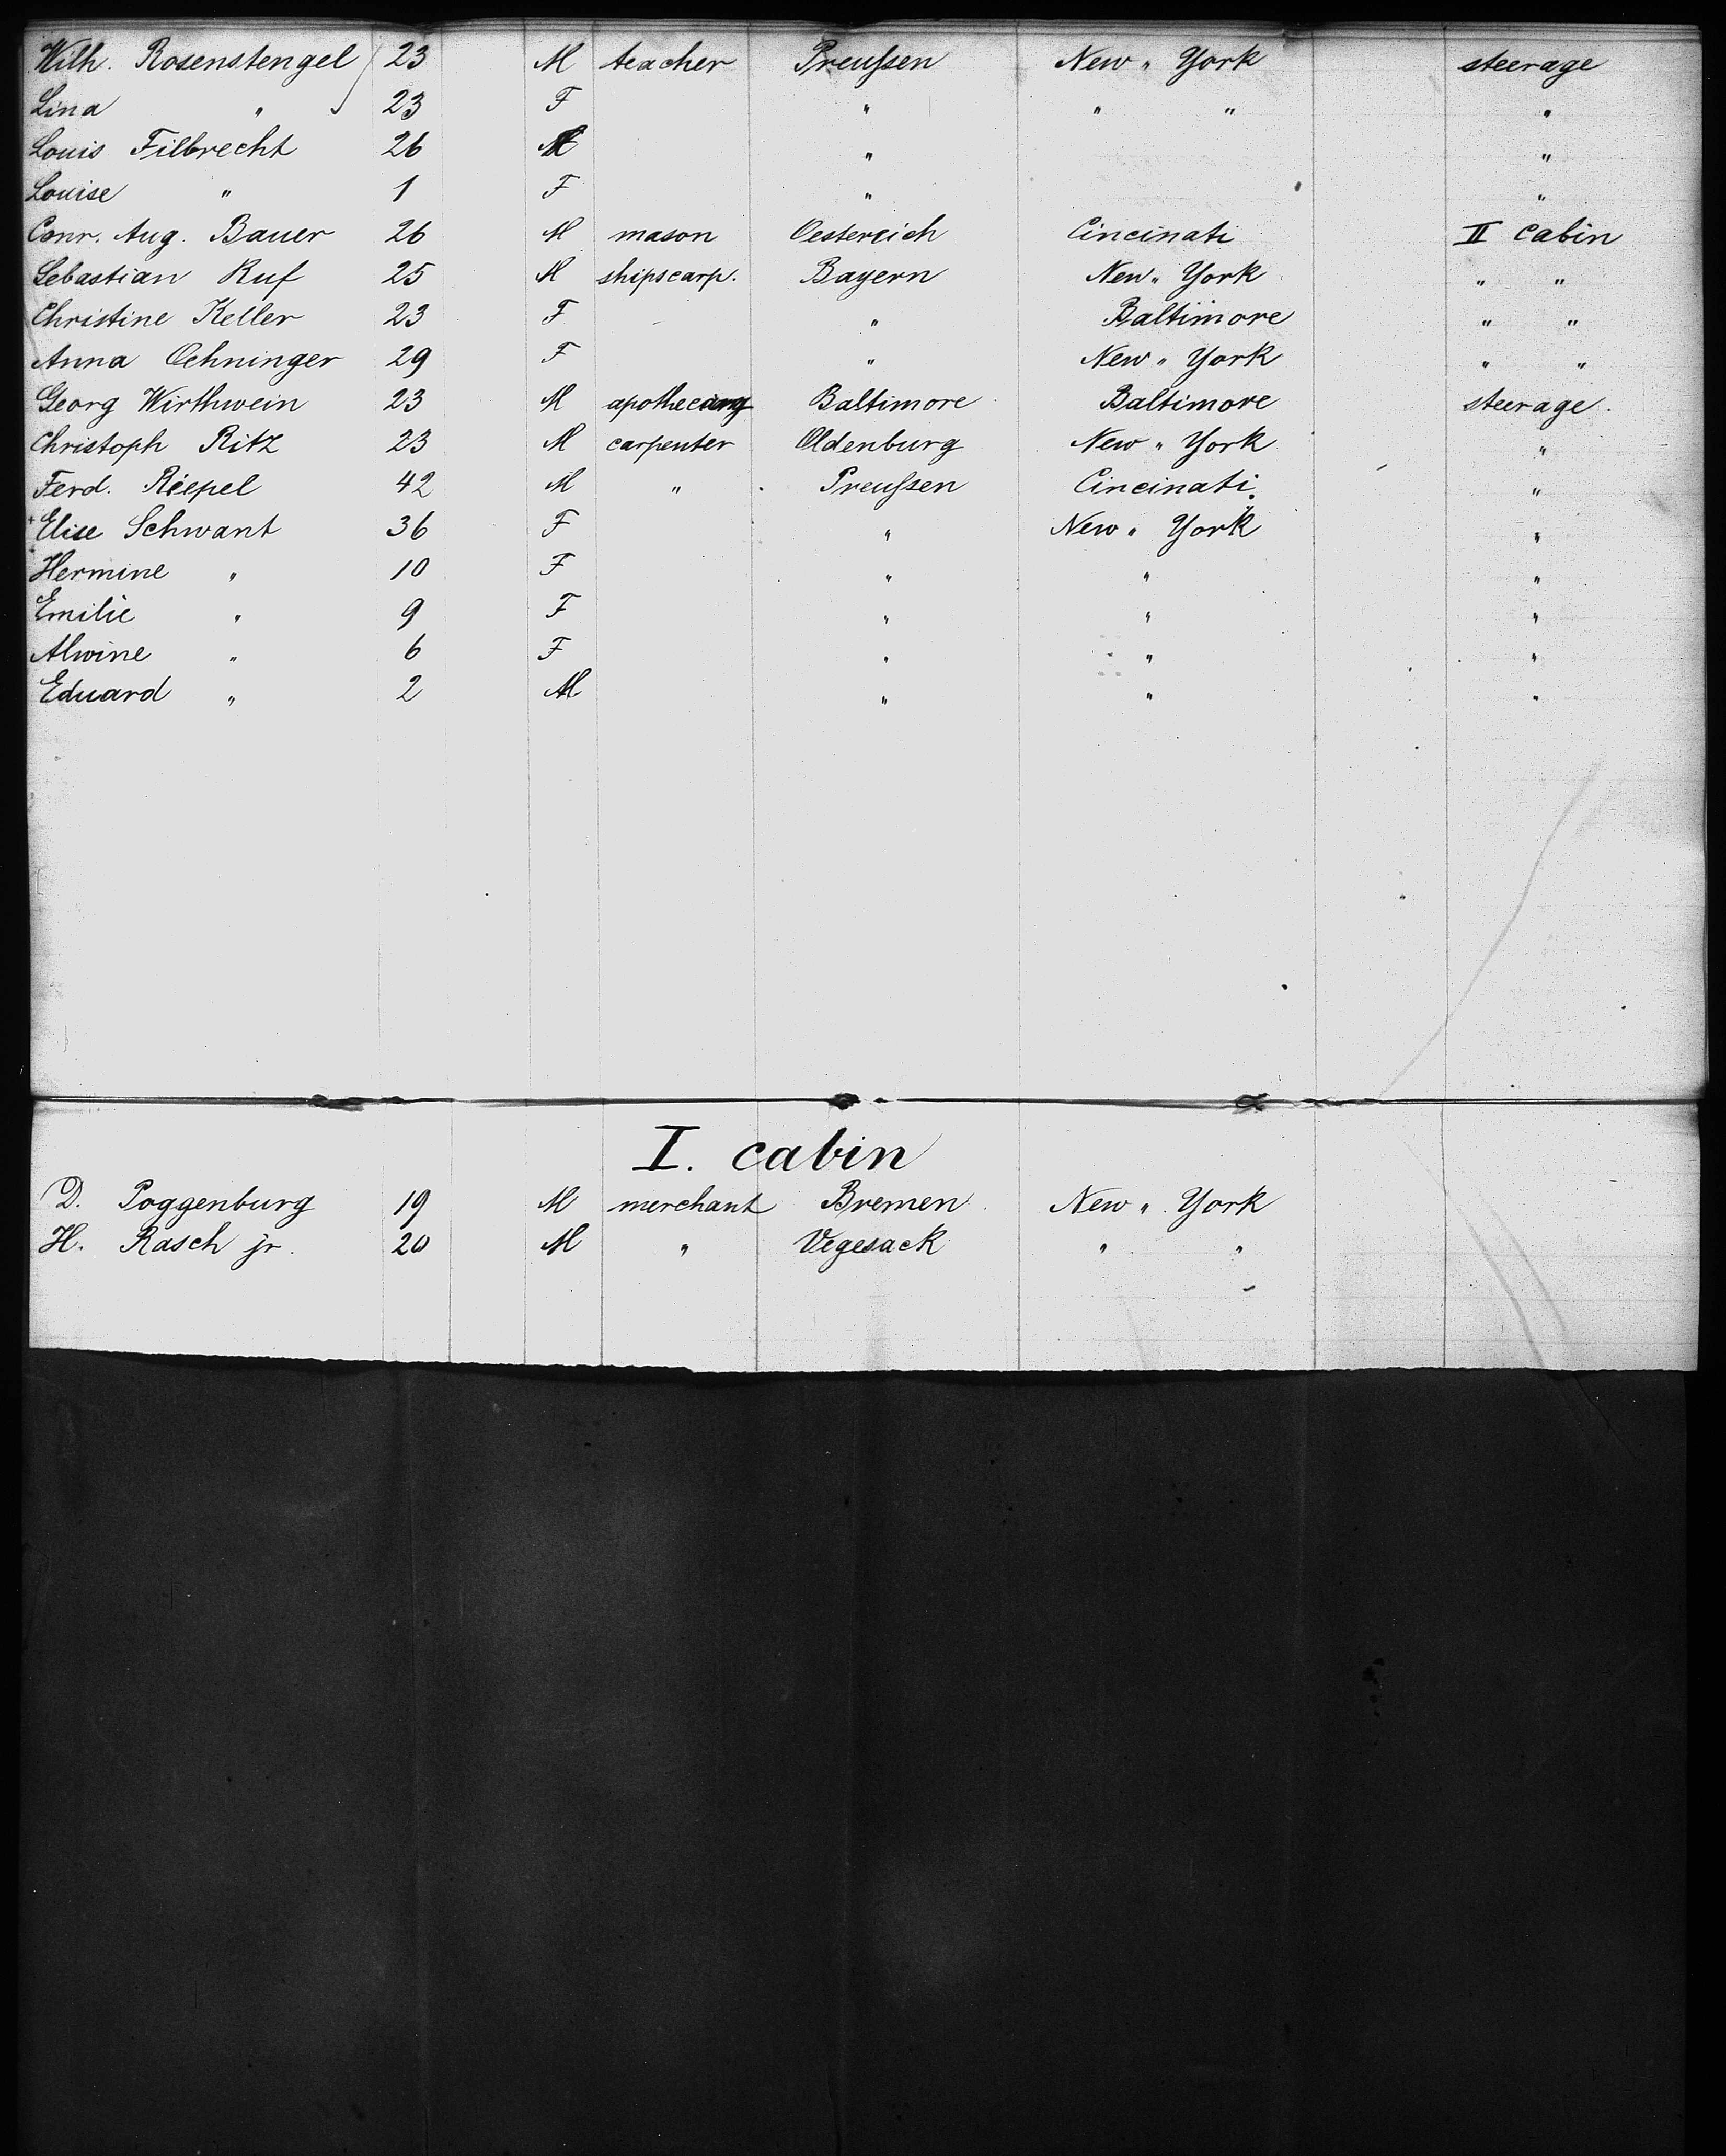 Wilh. Rosenstengel 23 M teacher Preußen New " York steerage
Lina " 23 F " " " "
Louis Filbrecht 26 M " "
Louise " 1 F " "
Conr. Aug. Bauer 26 M mason Oestereich Cincinati II cabin
Sebastian Ruf 25 M shipscarp. Bayern New " York " "
Christine Keller 23 F " Baltimore " "
Anna Oehninger 29 F " New " York " "
Georg Wirthwein 23 M apothecary Baltimore Baltimore steerage.
Christoph Ritz 23 M carpenter Oldenburg New " York "
Ferd. Riepel 42 M " Preußen Cincinati "
Elise Schwant 36 F " New " York "
Hermine " 10 F " " "
Emilie " 9 F " " "
Alwine " 6 F " " "
Eduard " 2 M " " "
I. cabin
D. Poggenburg 19 M merchant Bremen New " York
H. Rasch jr. 20 M " Vegesack " "